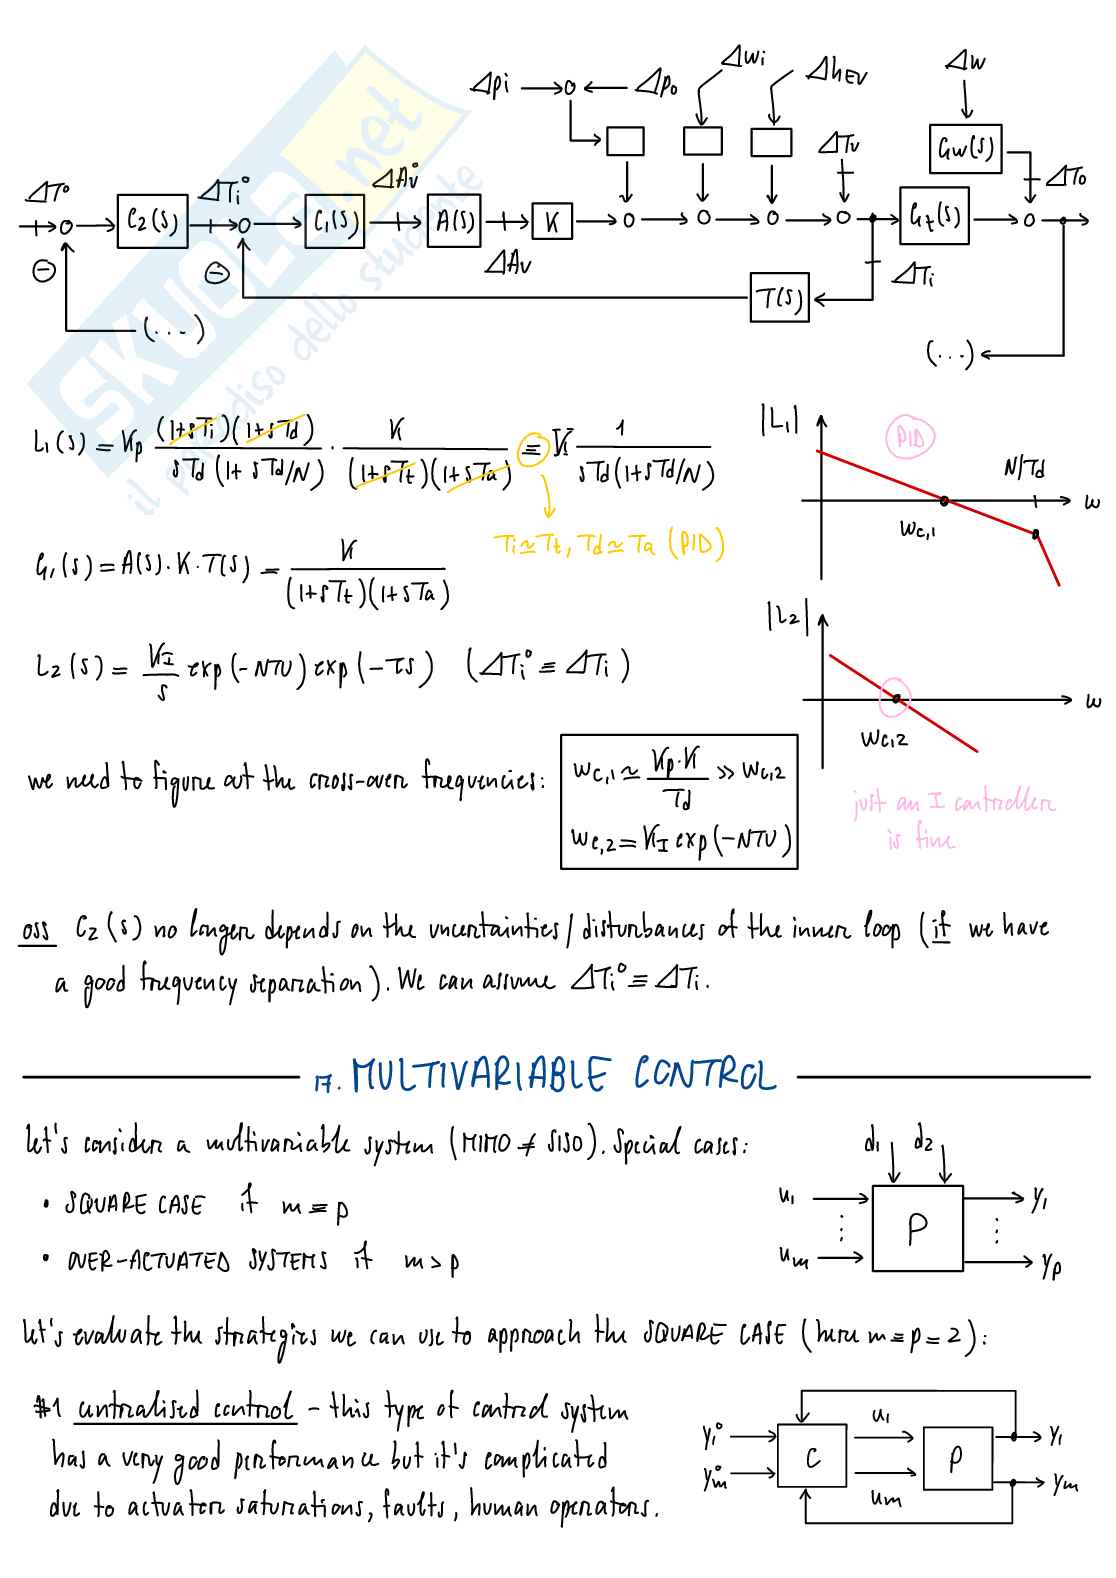 Δpi Δpo Δwi ΔhEV Δw
ΔTv Gw(s) ΔTo
ΔT° C2(s) ΔTi° C1(s) ΔAv° A(s) K Gt(s)
ΔAv ΔTi
T(s)
(...) (...)
L1(s) = Kp (1+sTi)(1+sTd) / sTd(1+sTd/N) · K / (1+sTt)(1+sTa) = K 1 / sTd(1+sTd/N)
Ti≃Tt, Td≃Ta (PID)
|L1| PID N/Td w
wc,1
G1(s) = A(s)·K·T(s) = K / (1+sTt)(1+sTa)
L2(s) = KI/s exp(-NTU) exp(-τs) (ΔTi° ≡ ΔTi)
|L2| w
wc,2
just an I controller
is fine
we need to figure out the cross-over frequencies:
wc,1 ≃ Kp·K / Td >> wc,2
wc,2 = KI exp(-NTU)
oss C2(s) no longer depends on the uncertainties/disturbances of the inner loop (if we have
a good frequency separation). We can assume ΔTi° ≡ ΔTi.
17. MULTIVARIABLE CONTROL
let's consider a multivariable system (MIMO ≠ SISO). Special cases:
• SQUARE CASE if m ≡ p
• OVER-ACTUATED SYSTEMS if m > p
d1 d2
u1 P y1
um yp
let's evaluate the strategies we can use to approach the SQUARE CASE (here m = p = 2):
#1 centralised control - this type of control system
has a very good performance but it's complicated
due to actuator saturations, faults, human operators.
y1° C u1 P y1
ym° um ym
SKUOLA.net
il paradiso dello studente